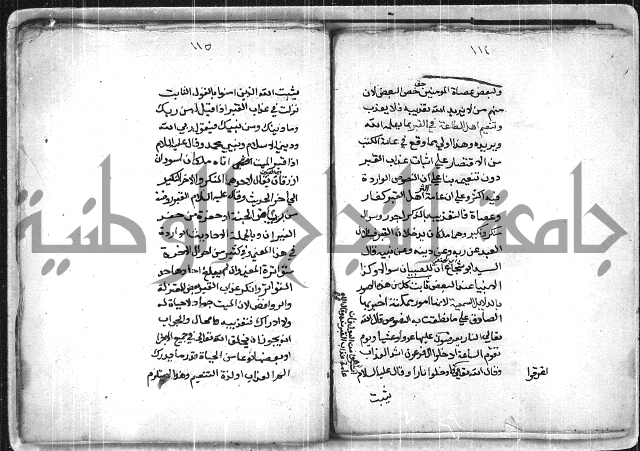 ١١٤
ولبعض عصاة المؤمنين خص البعض لان
منهم من لا يريد الله تعذيبه فلا يعذب
وتنعيم اهل الطاعة في القبر بما يعلمه الله
ويريده وهذا اولى مما وقع في عامة الكتب
من الاقتصار على اثبات عذاب القبر
دون تنعيمه بناء على ان النصوص الواردة
فيه اكثر وعلى ان عامة اهل القبر كفار
وعصاة فالتعذيب بالذكر اجدر وسوال
منكر ونكير وهما ملكان يدخلان القبر فيسألان
العبد عن ربه وعن دينه وعن نبيه قال
السيد ابو شجاع ان للصبيان سوالا وكذا
للانبياء عند البعض ثابت كل من هذه الامور
بالدلائل السمعية لانها امور ممكنة اخبر بها
الصادق على ما نطقت به النصوص قال الله
تعالى النار يعرضون عليها غدوا وعشيا ويوم
تقوم الساعة ادخلوا ال فرعون اشد العذاب
وقال الله تعالى اغرقوا فادخلوا نارا وقال عليه السلام
يثبت
١١٥
يثبت الله الذين امنوا بالقول الثابت
نزلت في عذاب القبر اذا قيل له من ربك
وما دينك ومن نبيك فيقول ربي الله
وديني الاسلام ونبيي محمد وقال عليه السلام
اذا قبر الميت اتاه ملكان اسودان
ازرقان يقال لاحدهما المنكر والاخر النكير
الى اخر الحديث وقال عليه السلام القبر روضة
من رياض الجنة او حفرة من حفر
النيران وبالجملة الاحاديث الواردة
في هذا المعنى وفي كثير من احوال الاخرة
متواترة المعنى وان لم يبلغ احادها حد
التواتر وانكر عذاب القبر بعض المعتزلة
والروافض لان الميت جماد لا حياة له
ولا ادراك فتعذيبه محال والجواب
انه يجوز ان يخلق الله تعالى في جميع الاجزاء
او بعضها نوعا من الحياة قدر ما يدرك
الم العذاب او لذة التنعيم وهذا لا يستلزم
جامعة النجاح الوطنية